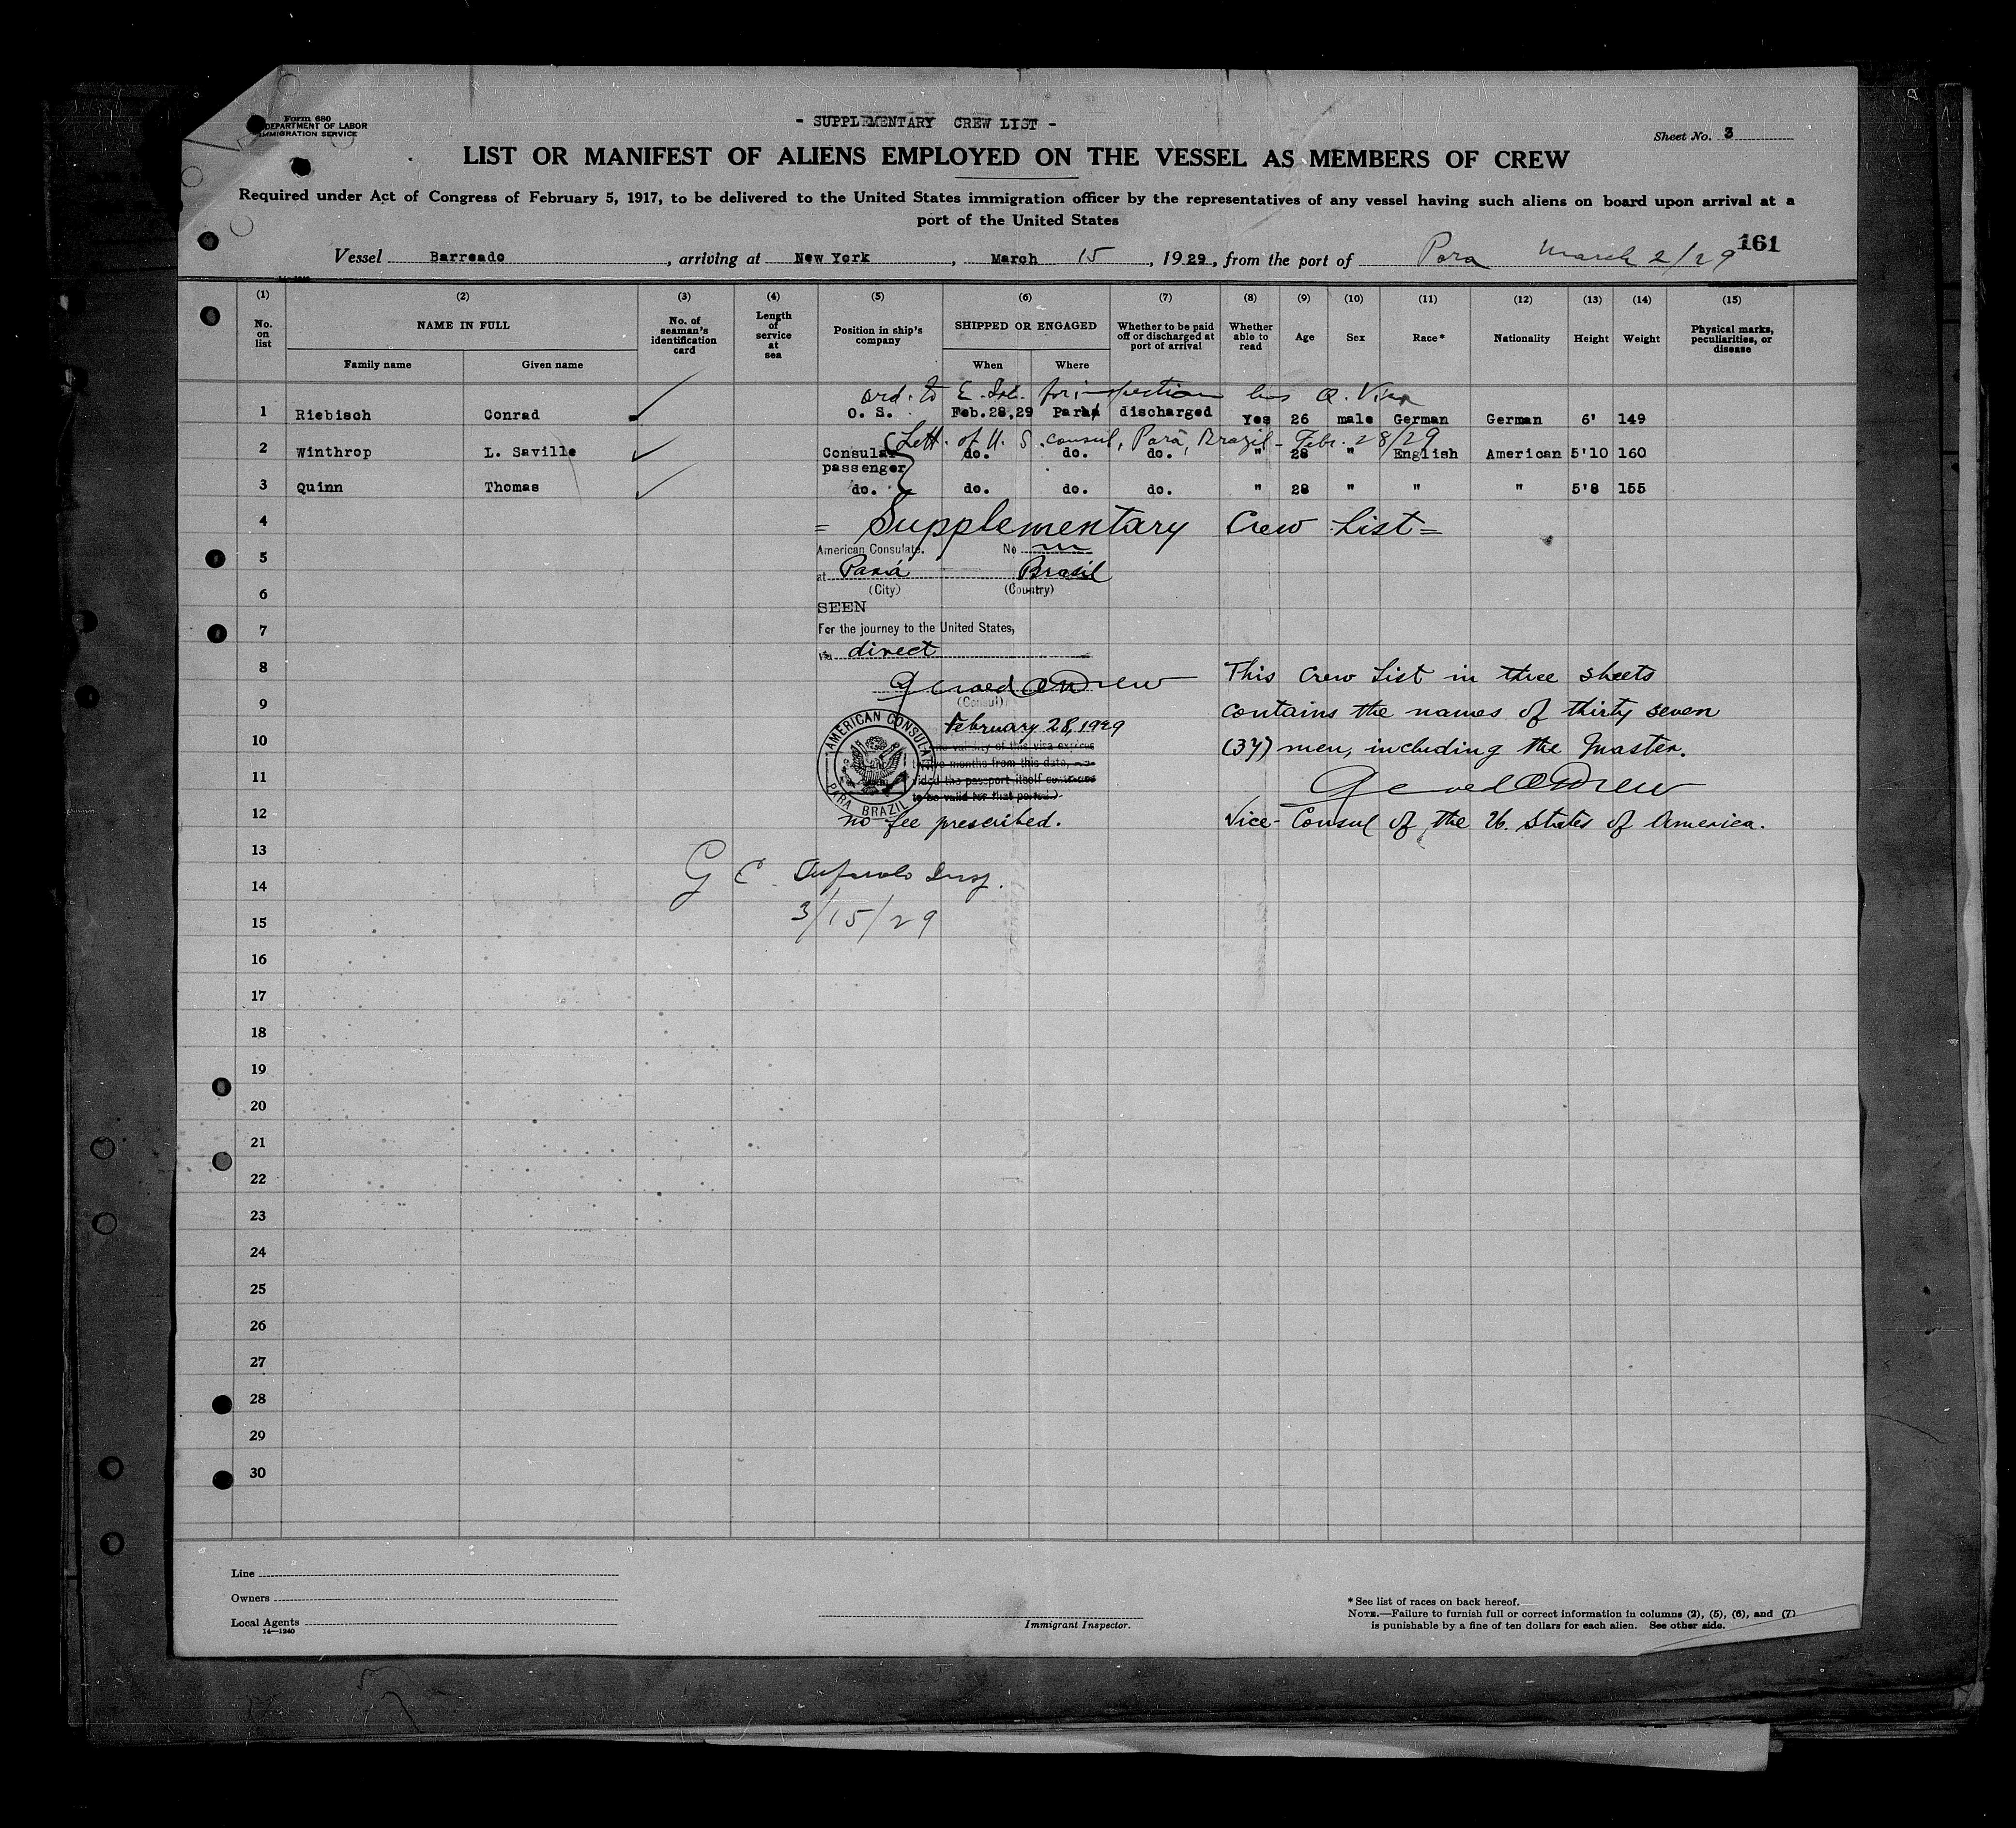 Form 680
DEPARTMENT OF LABOR
IMMIGRATION SERVICE
- SUPPLEMENTARY CREW LIST -
Sheet No. 3
LIST OR MANIFEST OF ALIENS EMPLOYED ON THE VESSEL AS MEMBERS OF CREW
Required under Act of Congress of February 5, 1917, to be delivered to the United States immigration officer by the representatives of any vessel having such aliens on board upon arrival at a
port of the United States
161
Vessel Barreado, arriving at New York, March 15, 1929, from the port of Para March 2/29
(1) (2) (3) (4) (5) (6) (7) (8) (9) (10) (11) (12) (13) (14) (15)
No. on list NAME IN FULL Family name Given name No. of seaman's identification card Length of service at sea Position in ship's company SHIPPED OR ENGAGED When Where Whether to be paid off or discharged at port of arrival Whether able to read Age Sex Race* Nationality Height Weight Physical marks, peculiarities, or disease
ord. to E. Isl. for inspection has Q. Visa
1 Riebisch Conrad O. S. Feb.28,29 Para discharged Yes 26 male German German 6' 149
(Lett. of U. S. consul, Pará, Brazil - Febr. 28/29
2 Winthrop L. Saville Consular passenger do. do. do. " 28 " English American 5'10 160
3 Quinn Thomas do. do. do. do. " 28 " " " 5'8 155
4
= Supplementary Crew List =
5
American Consulate. No
at Pará Brasil
6
(City) (Country)
SEEN
7
For the journey to the United States,
via direct
8
This Crew List in three sheets
Gerald A Drew
(Consul)
9
contains the names of thirty seven
February 28, 1929
10
(37) men, including the Master.
AMERICAN CONSULATE
PARA BRAZIL
the validity of this visa expires
twelve months from this date, pro-
vided the passport itself continues
to be valid for that period.
11
Gerald A Drew
12
no fee prescribed.
Vice-Consul of the U. States of America.
13
14
G C Insp.
15
3/15/29
16
17
18
19
20
21
22
23
24
25
26
27
28
29
30
Line
Owners
Local Agents
14—1240
Immigrant Inspector.
* See list of races on back hereof.
NOTE.—Failure to furnish full or correct information in columns (2), (5), (6), and (7)
is punishable by a fine of ten dollars for each alien. See other side.